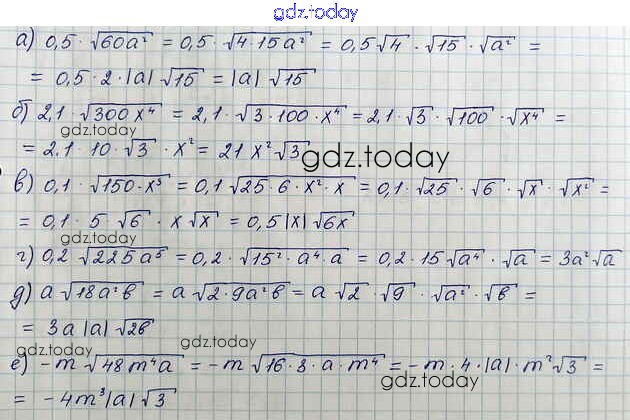 gdz.today
а) 0,5 · √60a² = 0,5 · √4·15a² = 0,5√4 · √15 · √a² =
= 0,5 · 2 · |a| √15 = |a| √15
б) 2,1 · √300x⁴ = 2,1 · √3·100·x⁴ = 2,1·√3 · √100 · √x⁴ =
gdz.today
= 2,1 · 10 · √3 · x² = 21 x² √3
gdz.today
в) 0,1 · √150·x³ = 0,1 √25·6·x²·x = 0,1 · √25 · √6 · √x · √x² =
= 0,1 · 5 √6 · x √x = 0,5|x| √6x
gdz.today
г) 0,2 √225a⁵ = 0,2 · √15²·a⁴·a = 0,2·15√a⁴ · √a = 3a² √a
д) a √18a²в = a √2·9a²в = a √2 · √9 · √a² · √в =
= 3a |a| √2в
gdz.today
gdz.today
е) -m √48m⁴a = -m √16·3·a·m⁴ = -m·4·|a|·m² √3 =
gdz.today
= -4m³|a| √3